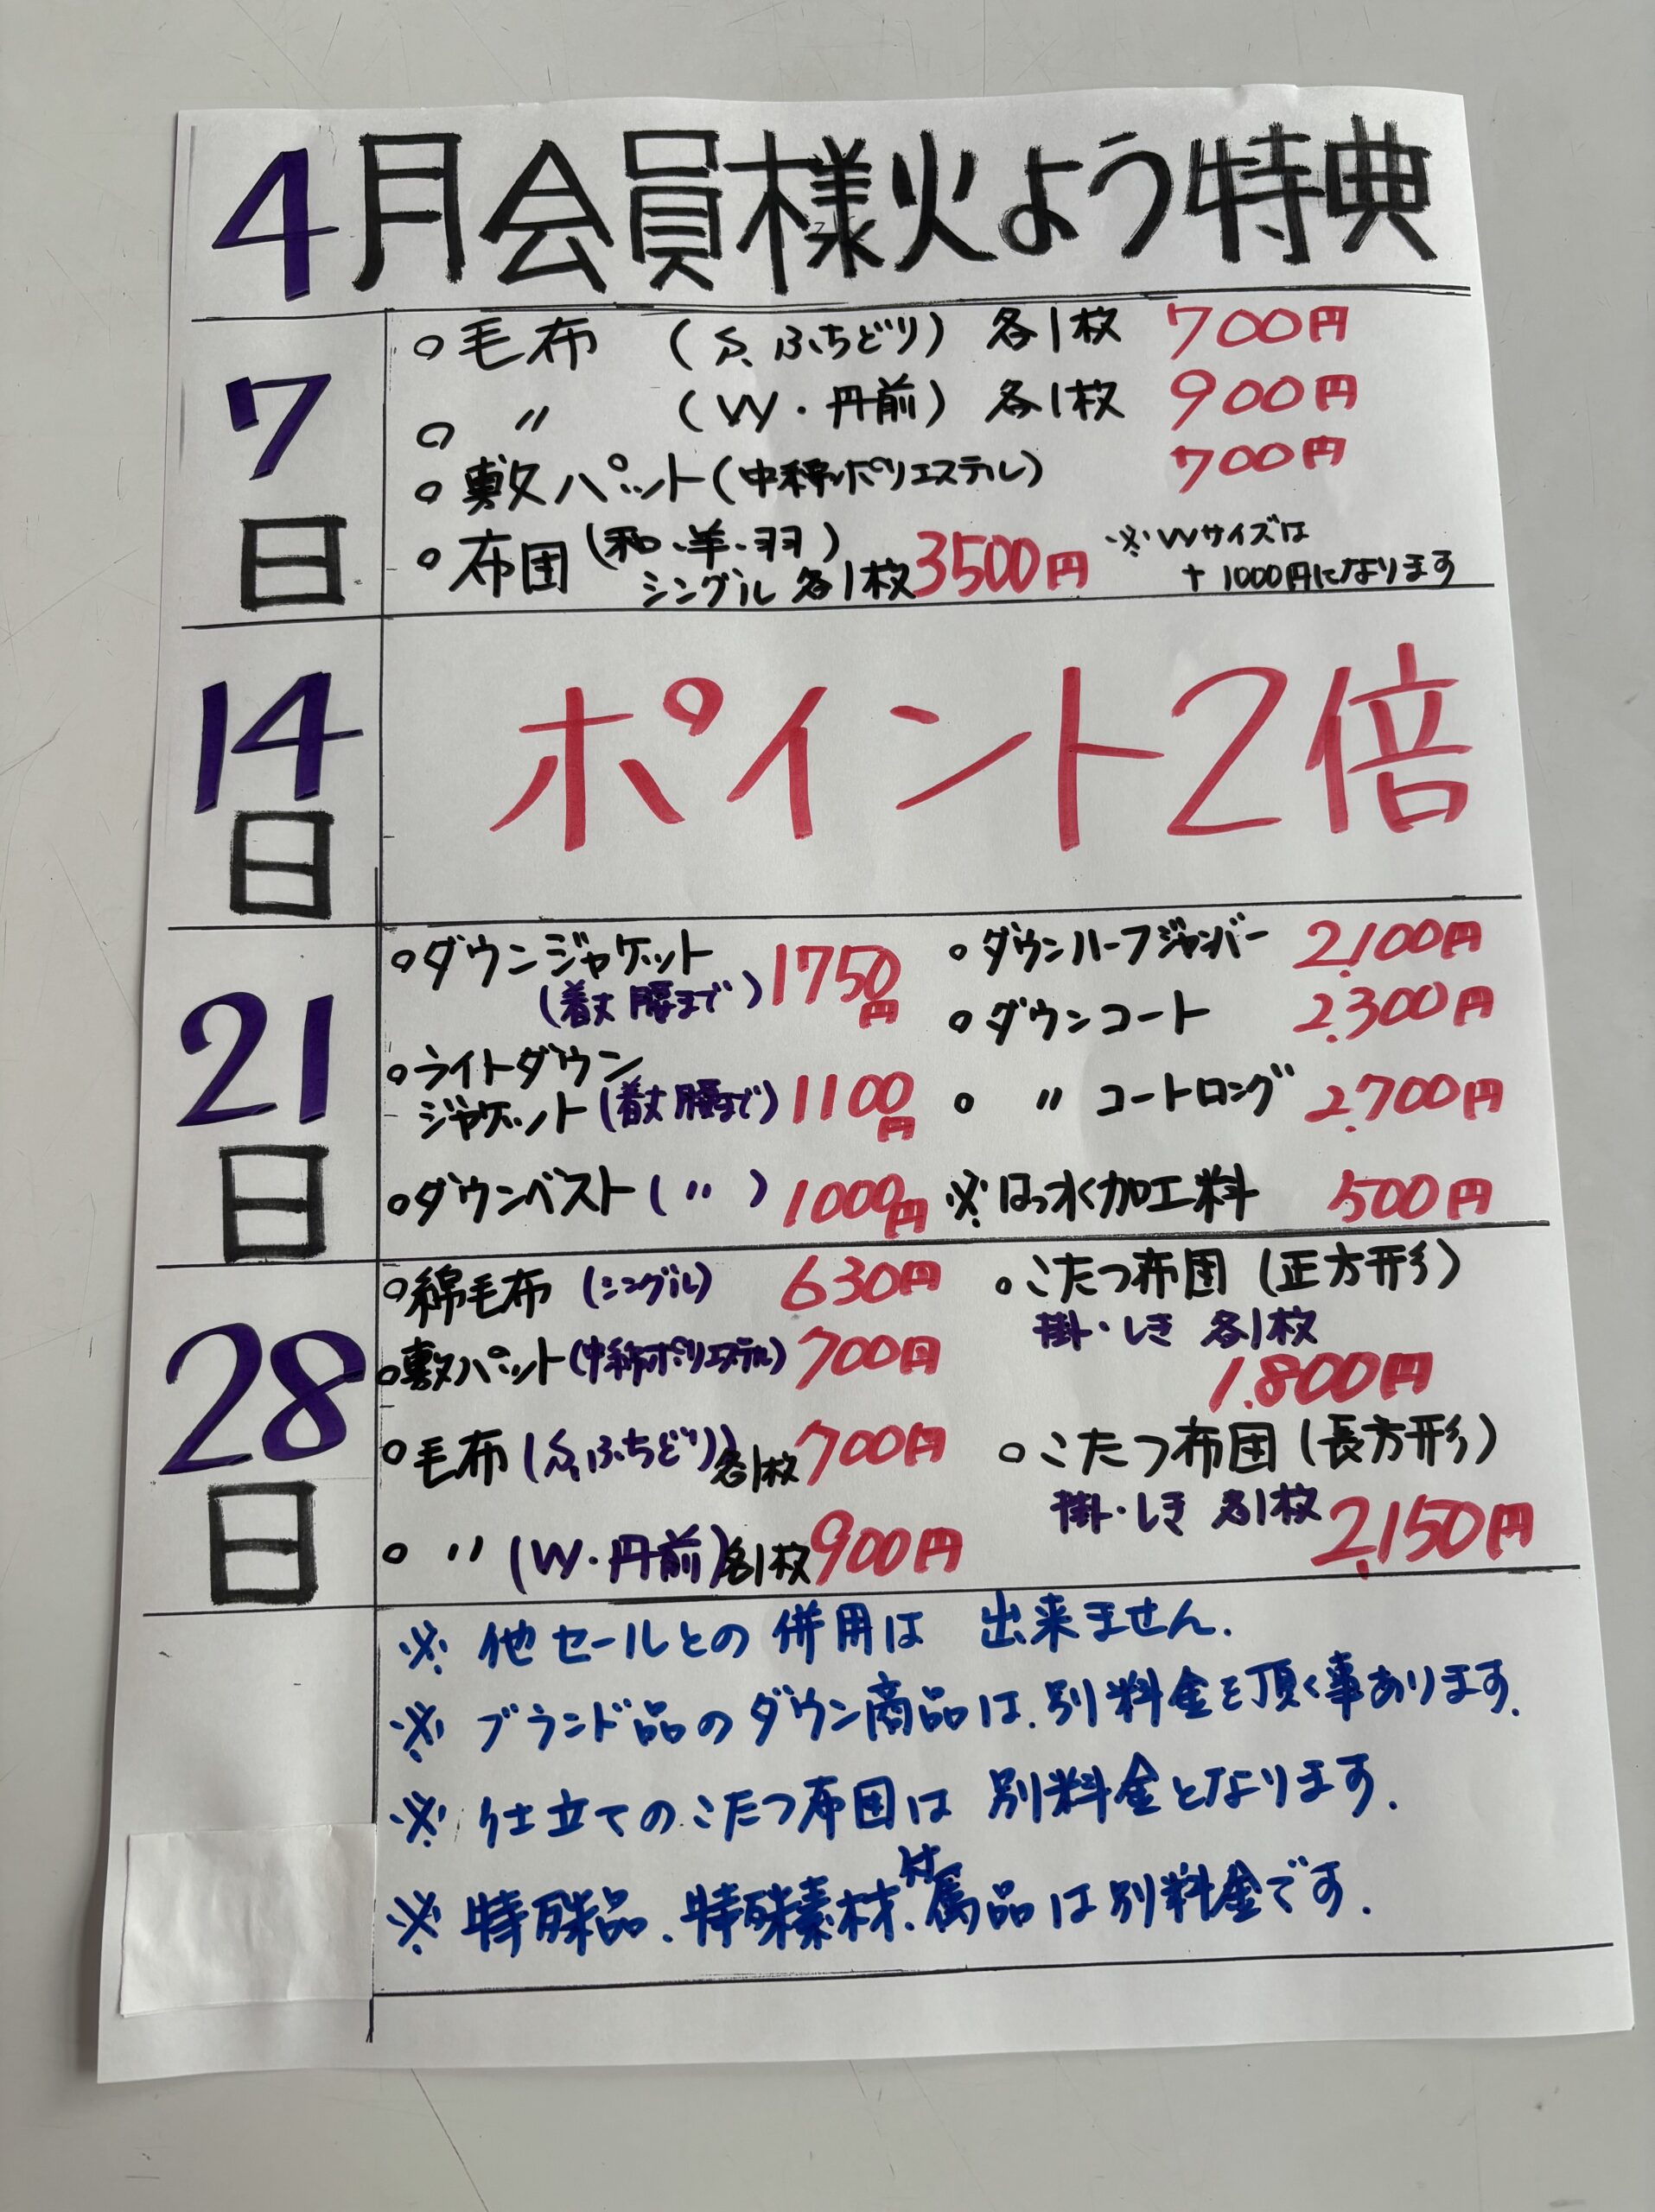 4月会員様火よう特典
7日
○毛布 (S、ふちどり) 各1枚 700円
○ 〃 (W・丹前) 各1枚 900円
○敷パット(中綿ポリエステル) 700円
○布団(和・羊・羽) シングル 各1枚 3500円
※Wサイズは
+1000円になります
14日
ポイント2倍
21日
○ダウンジャケット
(着丈 腰まで) 1750円
○ライトダウン
ジャケット(着丈 腰まで) 1100円
○ダウンベスト(〃) 1000円
○ダウンハーフジャンバー 2,100円
○ダウンコート 2,300円
○ 〃 コートロング 2,700円
※はっ水加工料 500円
28日
○綿毛布 (シングル) 630円
○敷パット(中綿ポリエステル) 700円
○毛布(S、ふちどり)各1枚 700円
○ 〃 (W・丹前)各1枚 900円
○こたつ布団(正方形)
掛・しき 各1枚
1,800円
○こたつ布団(長方形)
掛・しき 各1枚 2,150円
※ 他セールとの併用は 出来ません.
※ ブランド品のダウン商品は、別料金を頂く事あります.
※ 仕立てのこたつ布団は 別料金となります.
※ 特殊品、特殊素材、付属品は別料金です.